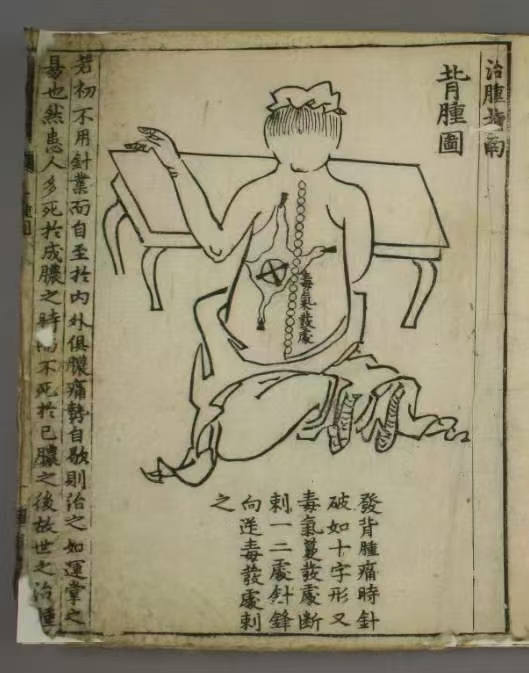 治腫指南
背腫圖
毒氣發處
發背腫痛時針
破如十字形又
毒氣蔓發處斷
刺一二處針鋒
向逆毒發處刺
之
若初不用針業而自至於內外俱膿痛勢自歇則治之如運掌之
易也然患人多死於成膿之時而不死於已膿之後故世之治腫